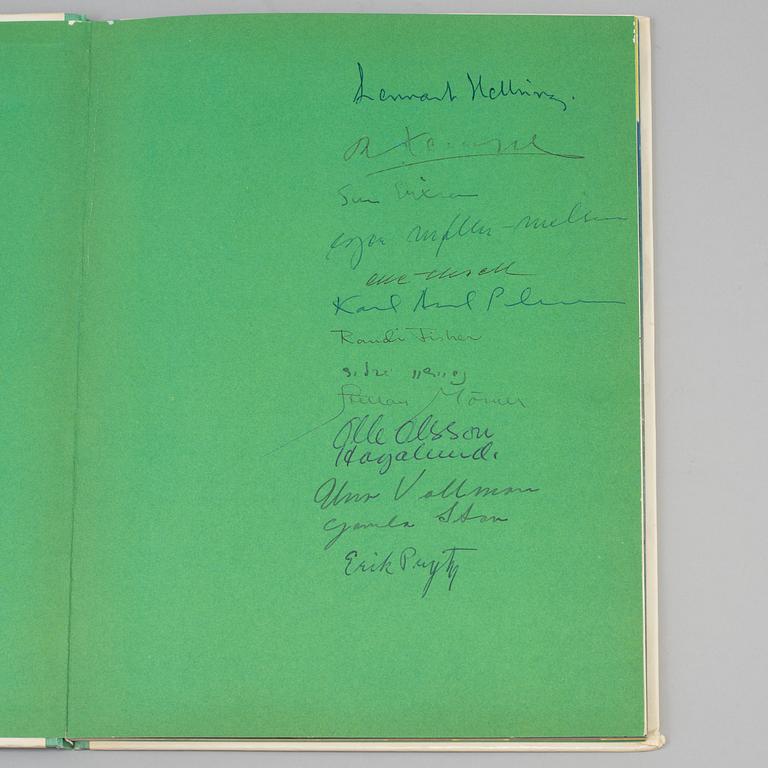 Lennart Hellsing.
Sven Erixson
Egon Møller-Nielsen
Karl Axel Pehrson
Randi Fisher
Stellan Mörner
Olle Olsson
Hagalund.
Uno Vallman
Gamla Stan
Erik Prytz